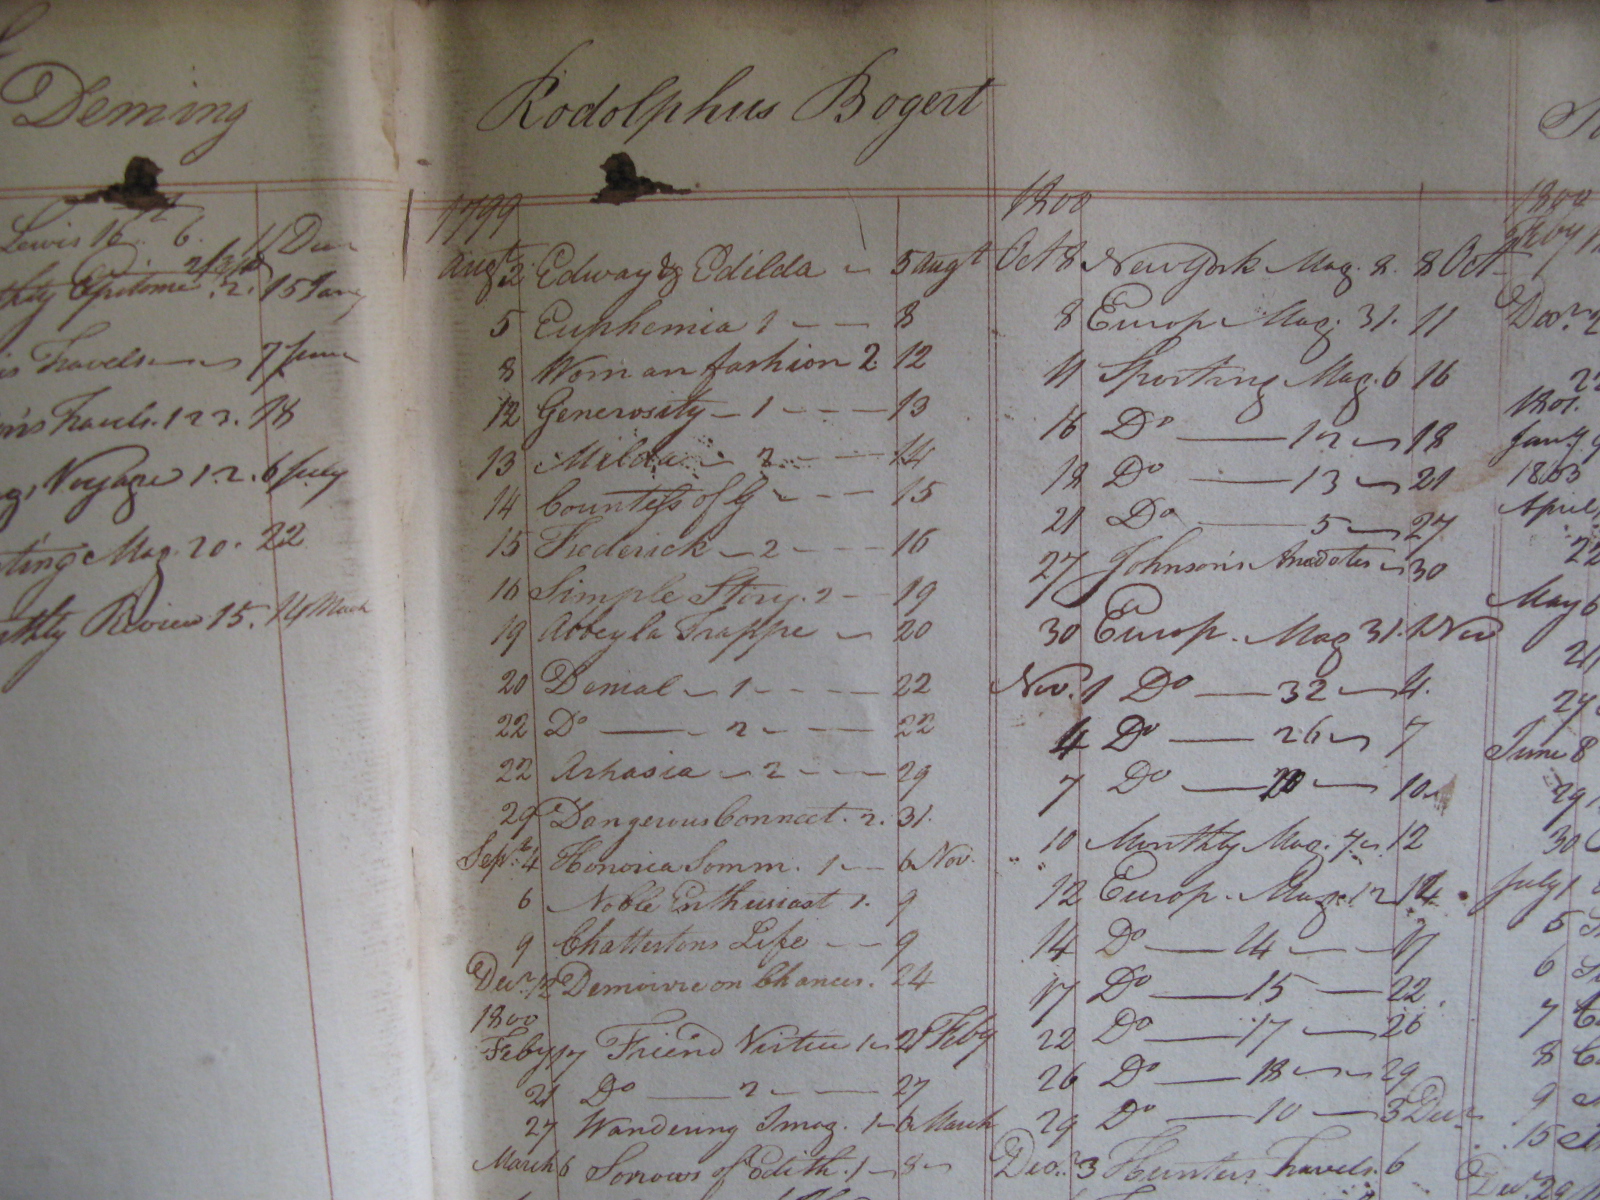 Deming
Lewis 16 6. 11 Decr
Epitome . 2. 15 Jany
Travels 7 June
Travels. 1 2 3. 18
Voyage 1. 2. 6 July
ting Mag. 20. 22
thly Review 15. 14 March
Rodolphus Bogert
1799
Augt 2 Edway & Edilda 5 augt
5 Euphemia 1 8
8 Woman fashion 2 12
12 Generosity 1 13
13 Milda 2 14
14 Countess of G 15
15 Frederick 2 16
16 Simple Story. 2 19
19 Abbey la Trappe 20
20 Denial 1 22
22 Do 2 22
22 Aspasia 2 29
29 Dangerous Connect. 2. 31.
Sept. 4 Honoria Somm. 1 6 Nov.
6 Noble Enthusiast 1. 9
9 Chattertons Life 9
Decr. 12 Demoivre on Chances. 24
1800
Feby 17 Friend Virtue 1 21 Feby
21 Do 2 27
27 Wandering Imag. 1 6 March
March 6 Sorrows of Edith. 1 8
1800
Oct 8 New York Mag. 8. 8 Oct
8 Europ Mag. 31. 11
11 Sporting Mag. 6 16
16 Do 12 18
18 Do 13 21
21 Do 5 27
27 Johnson's Anecdotes 30
30 Europ. Mag 31. 1 Nov
Nov. 1 Do 32 4.
4 Do 26 7
7 Do 10
10 Monthly Mag. 7. 12
12 Europ. Mag. 12 14
14 Do 14 17
17 Do 15 22.
22 Do 17 26
26 Do 18 29
29 Do 10 3 Decr
Decr. 3 Hunters Travels. 6
1800
Feby
Decr. 2
22
1801.
Jany 9
1803
April
22
May 6
21
24
June 8
29
30
July 1
5
6
7
8
9
15
Decr 29